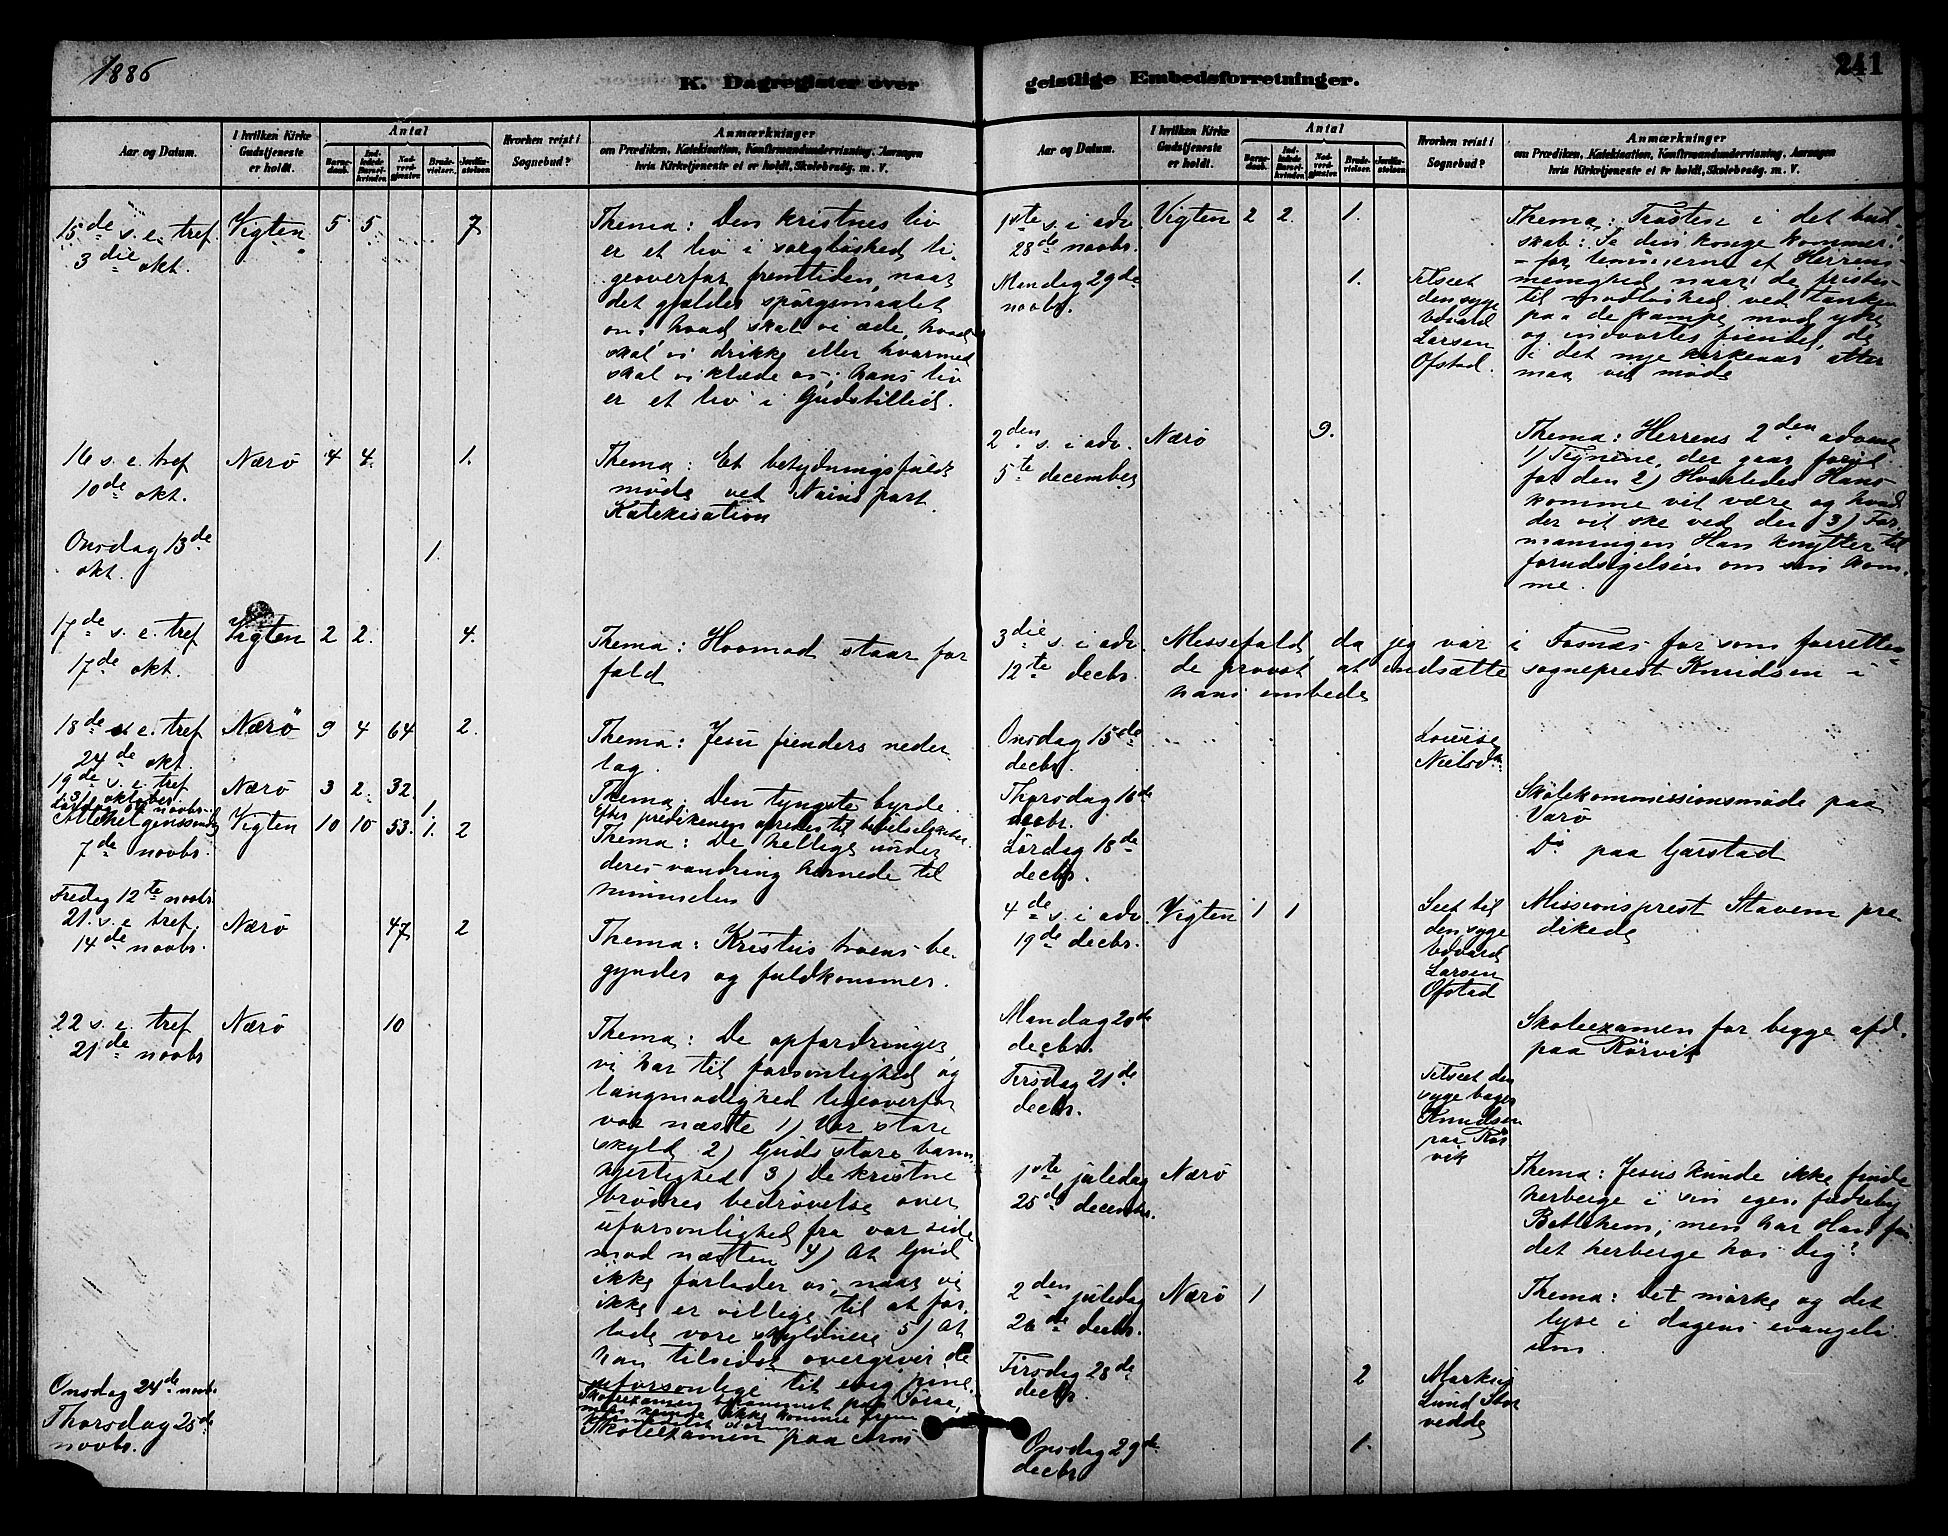 1886
K. Dagregister over
Aar og Datum.
I hvilken Kirke Gudstjeneste er holdt.
Antal
Barne-daab.
Ind-ledede Barsel-kvinder.
Nad-verd-gjæster.
Brude-vielser.
Jordfæ-stelser.
Hvorhen reist i Sognebud?
Anmærkninger
om Prædiken, Katekisation, Konfirmandundervisning, Aarsagen
hvis Kirketjeneste ei er holdt, Skolebesøg, m. V.
15de s. e. tref. Vigten 5 5 7
3die okt.
Thema: Den kristnes liv
er et liv i sorgløshed li-
geoverfor fremtiden, naar
det gjælder spørgsmaalet
om: hvad skal vi æde, hvad
skal vi drikke eller hvormed
skal vi klæde os; hans liv
er et liv i Gudstillid.
16 s. e. tref Nærö 4 4. 1.
10de okt.
Thema: Et betydningsfuldt
møde ved Nains port.
Katekisation
Onsdag 13de
okt. 1.
17de s. e. tref Vigten 2 2. 4.
17de okt.
Thema: Hovmod staar for
fald
18de s. e. tref Nærö 9 4 64 2.
24de okt.
Thema: Jesu fienders neder
lag.
19de s. e. tref Nærö 3 2. 32.
31 oktober.
Thema: Den tyngste byrde.
Lørdag 6te novbr. 1.
Allehelgenssöndag Vigten 10 10 53. 1. 2
7de novbr.
Thema: De hellige under
deres vandring hernede til
himmelen
Fredag 12te novbr
21. s. e. tref. Nærö 47 2
14de novbr.
Thema: Kristus troens be-
gynder og fuldkommer.
22 s. e. tref Nærö 10
21de novbr
Thema: De opfordringer,
vi har til forsonlighed og
langmodighed ligeoverfor
vor næste 1) Vor store
skyld 2) Guds store barm-
hjertighed 3) De kristne
brødres bedrøvelse over
uforsonlighed fra vor side
mod næsten 4) At Gud
ikke forlader os, naar vi
ikke er villige til at for-
lade vore skyldnere 5) At
han tilsidst overgiver de
uforsonlige til evig pine.
Onsdag 24de novbr.
Skoleexamen berammet paa
men kunde ikke komme frem
Thorsdag 25de
novbr.
Skoleexamen paa Arnö
241
geistlige Embedsforretninger.
Aar og Datum.
I hvilken Kirke Gudstjeneste er holdt.
Antal
Barne-daab.
Ind-ledede Barsel-kvinder.
Nad-verd-gjæster.
Brude-vielser.
Jordfæ-stelser.
Hvorhen reist i Sognebud?
Anmærkninger
om Prædiken, Katekisation, Konfirmandundervisning, Aarsagen
hvis Kirketjeneste ei er holdt, Skolebesøg, m. V.
1ste s. i adv. Vigten 2 2. 1.
28de novbr.
Thema: Trösten i det bud
skab: Se din konge kommer!
- for lemmerne af Herrens
menighed naar de fristes
til modløshed ved tanken
paa de kampe mod ydre
og indvortes fiender, de
i det nye kirkeaar atter
maa vel møde
Mandag 29de
novbr. 1.
Tilseet
den syge
Edvard
Larsen
Ofstad.
2den s. i adv. Nærö 9.
5te december
Thema: Herrens 2den advent
1) Tegnene, der gaar forud
for den 2) Hvorledes Hans
komme vil være og hvad
der vil ske ved den 3) For-
maningen Han knytter til
forudsigelsen om sin kom-
me.
3die s. i adv. Messefald, da jeg var i Fosnæs for som forretten-
12te decbr. de provst at indsætte sogneprest Knudsen i
hans embede
Onsdag 15de
decbr.
Lovise
Nielsdtr
Thorsdag 16de
decbr.
Skolekommissionsmøde paa
Værö
Lørdag 18de
decbr.
Do paa Garstad
4de s. i adv. Vigten 1 1
19de decbr.
Seet til
den syge
Edvard
Larsen
Ofstad
Missionsprest Stavem pre
dikede
Mandag 20de
decbr.
Skoleexamen for begge afd.
paa Rörvik
Tirsdag 21de
decbr.
Tilseet den
syge bager
Knudsen
paa Rör
vik
1ste juledag Nærö
25de decembr.
Thema: Jesus kunde ikke finde
herberge i sin egen fædreby
Betlehem, men har Han fun
det herberge hos Dig?
2den juledag Nærö 1
26de decbr.
Thema: Det mørke og det
lyse i dagens evangeli
um
Tirsdag 28de
decbr. 2
Markus
Lund Stor
vedde
Onsdag 29de
decbr 1.